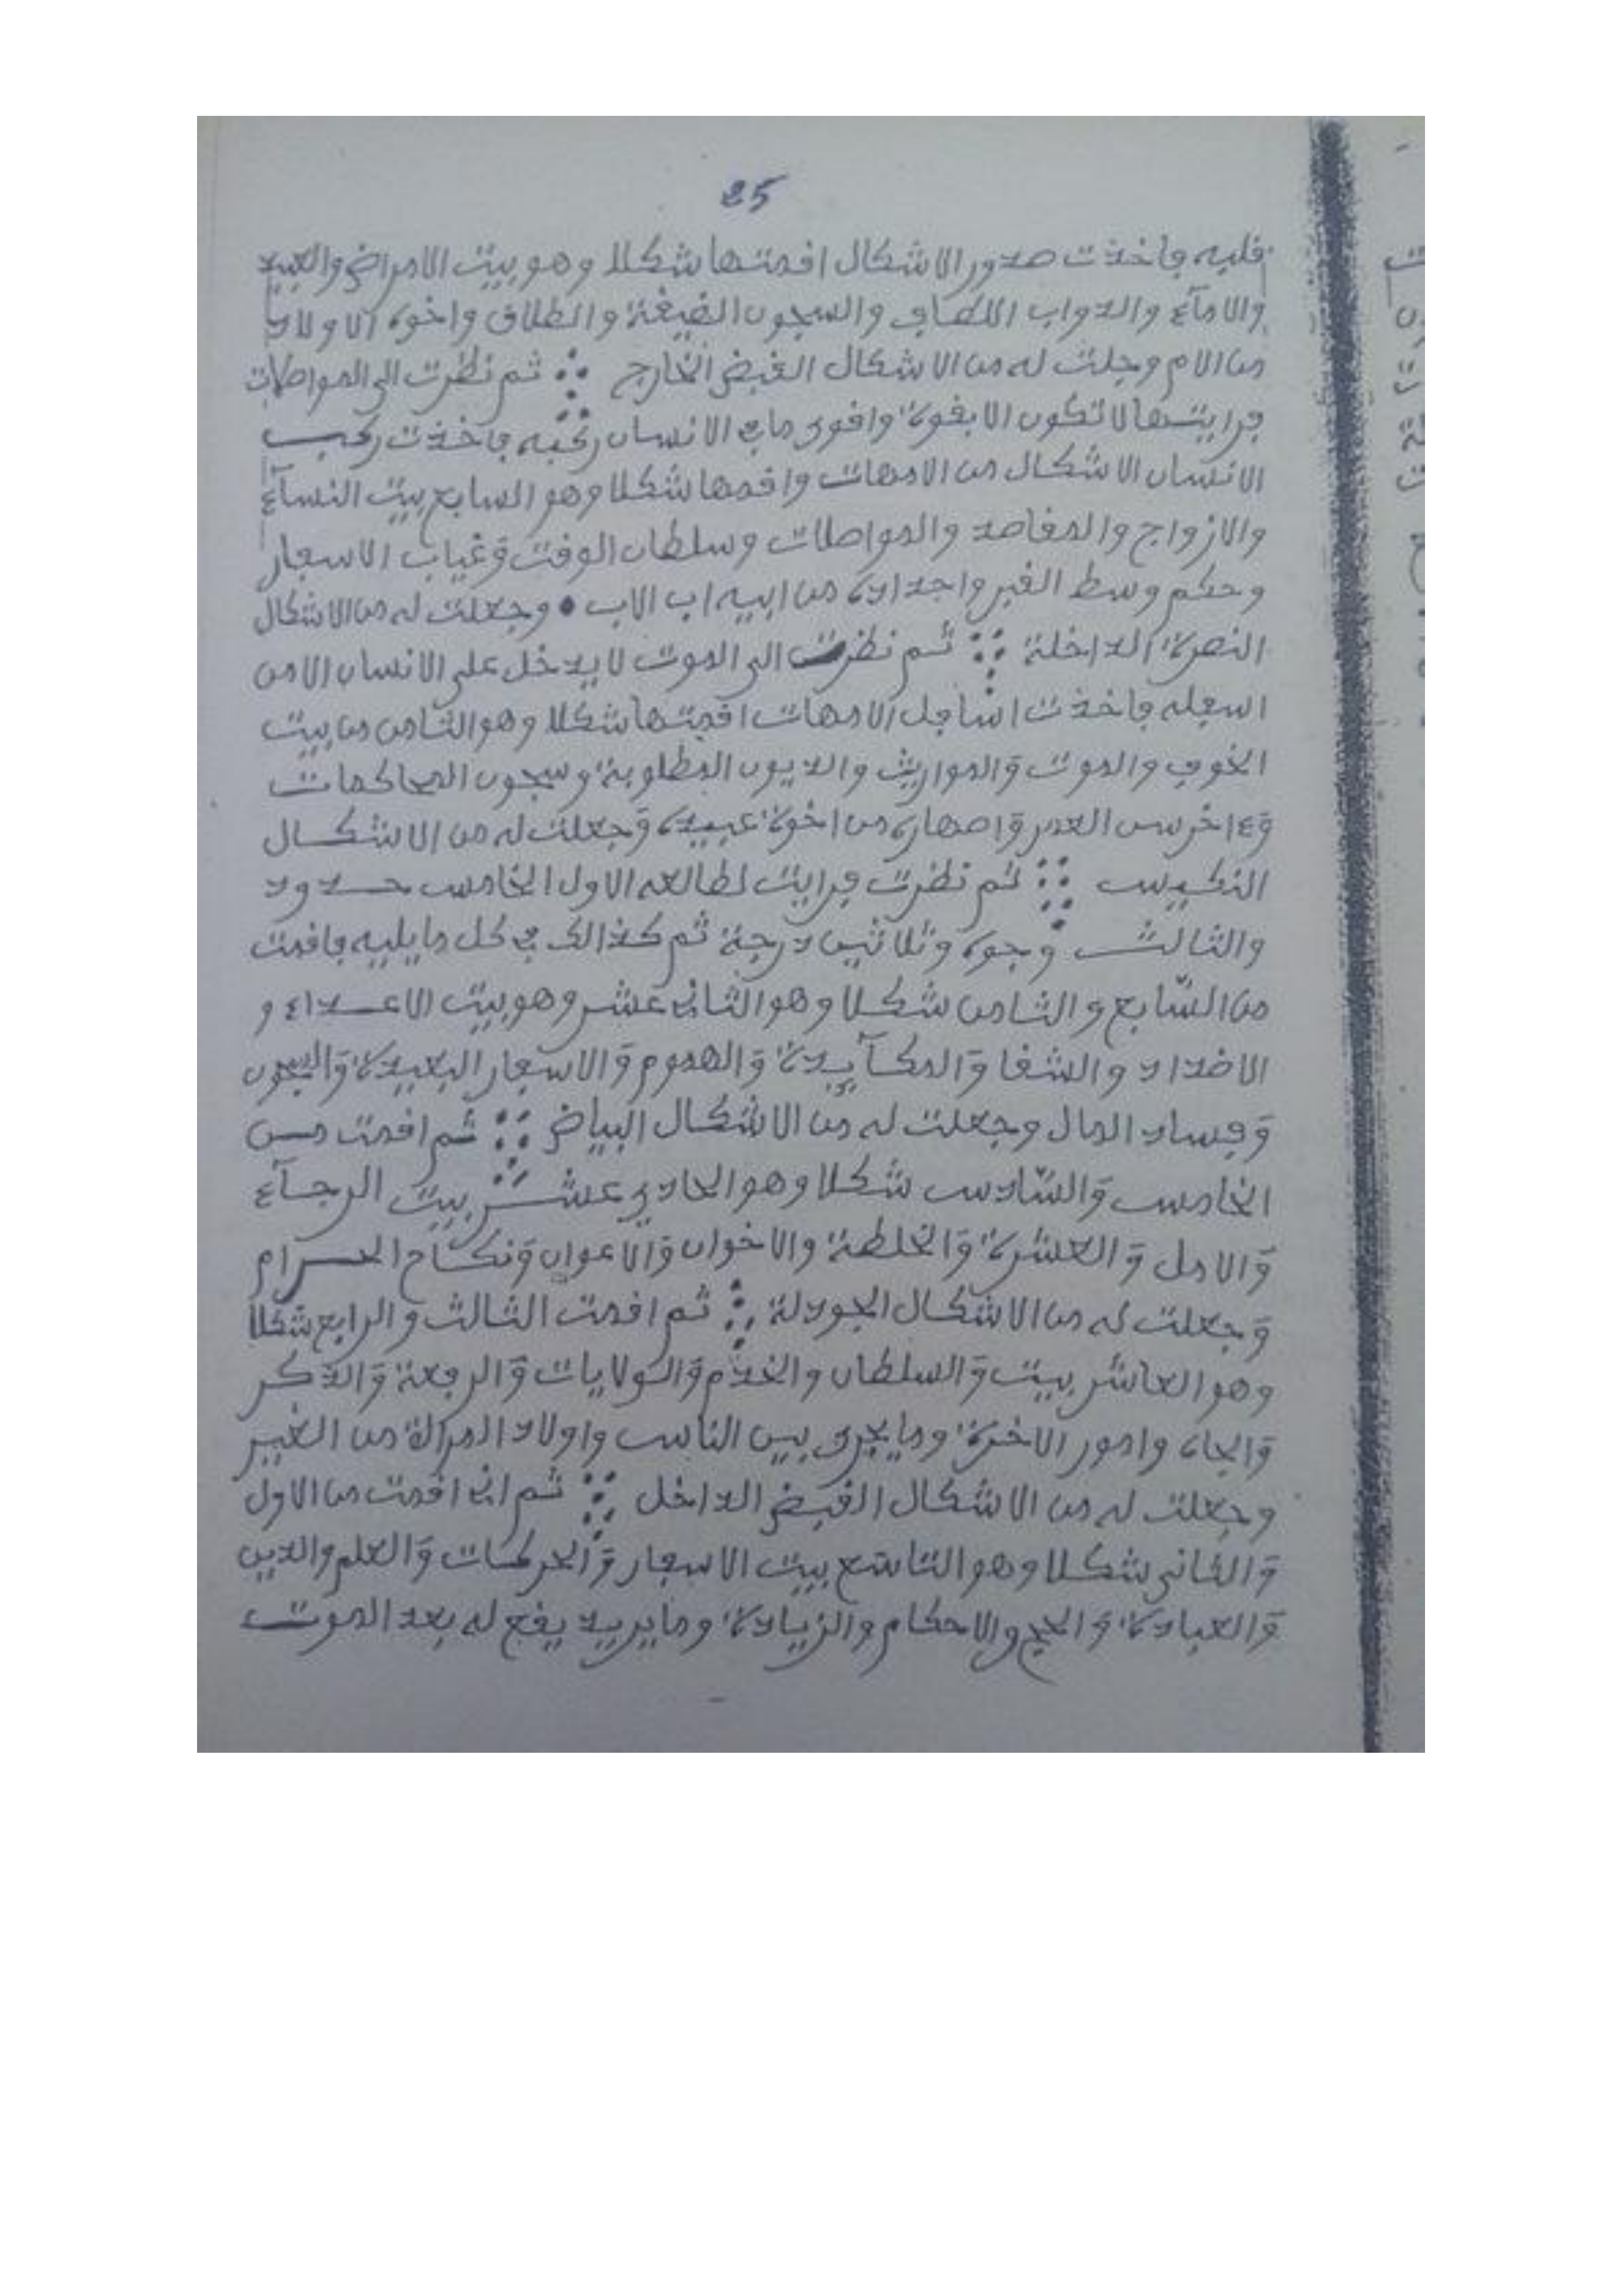 25
قلبه فاخذت صدور الاشكال اقمتها شكلا وهو بيت الامراض والعبيد
والامآء والدواب اللطاف والسجون الضيقة والطلاق واخوه الاولاد
من الام وجلت له من الاشكال القبض الخارج ثم نظرت الى المواصلات
فرايتها لا تكون الا بقوة واقوى ما في الانسان ركبه فاخذت ركب
الانسان الاشكال من الامهات واقمها شكلا وهو السابع بيت النسآء
والازواج والمقاصد والمواصلات وسلطان الوقت وغياب الاسفار
وحكم وسط القبر واجداده من ابيه اب الاب • وجعلت له من الاشكال
النصرة الداخلة ثم نظرت الى الموت لا يدخل على الانسان الا من
اسفله فاخذت اسافل الامهات اقمتها شكلا وهو الثامن من بيت
الخوف والموت والمواريث والديون المطلوبة وسجون المحاكمات
وءاخر سن العمر واصهاره من اخوة عبيده وجعلت له من الاشكال
النكيس ثم نظرت فرايت لطالعه الاول الخامس حدود
والثالث وجوه وثلاثين درجة ثم كذالك في كل ما يليه فاقمت
من السّابع والثامن شكلا وهو الثاني عشر وهو بيت الاعداء و
الاضداد والشقا والمكآيدة والهموم والاسفار البعيدة والسجون
وفساد المال وجعلت له من الاشكال البياض ثم اقمت من
الخامس والسّادس شكلا وهو الحادي عشر بيت الرجآء
والامل والعشرة والخلطة والاخوان والاعوان ونكاح الحرام
وجعلت له من الاشكال الجودلة ثم اقمت الثالث والرابع شكلا
وهو العاشر بيت والسلطان والخدم والولايات والرفعة والذكر
والجاه وامور الاخرة وما يجرى بين الناس واولاد المراة من الغير
وجعلت له من الاشكال القبض الداخل ثم اني اقمت من الاول
والثاني شكلا وهو التاسع بيت الاسفار والحركات والعلم والدين
والعبادة والحج والاحكام والزيادة وما يريد يقع له بعد الموت